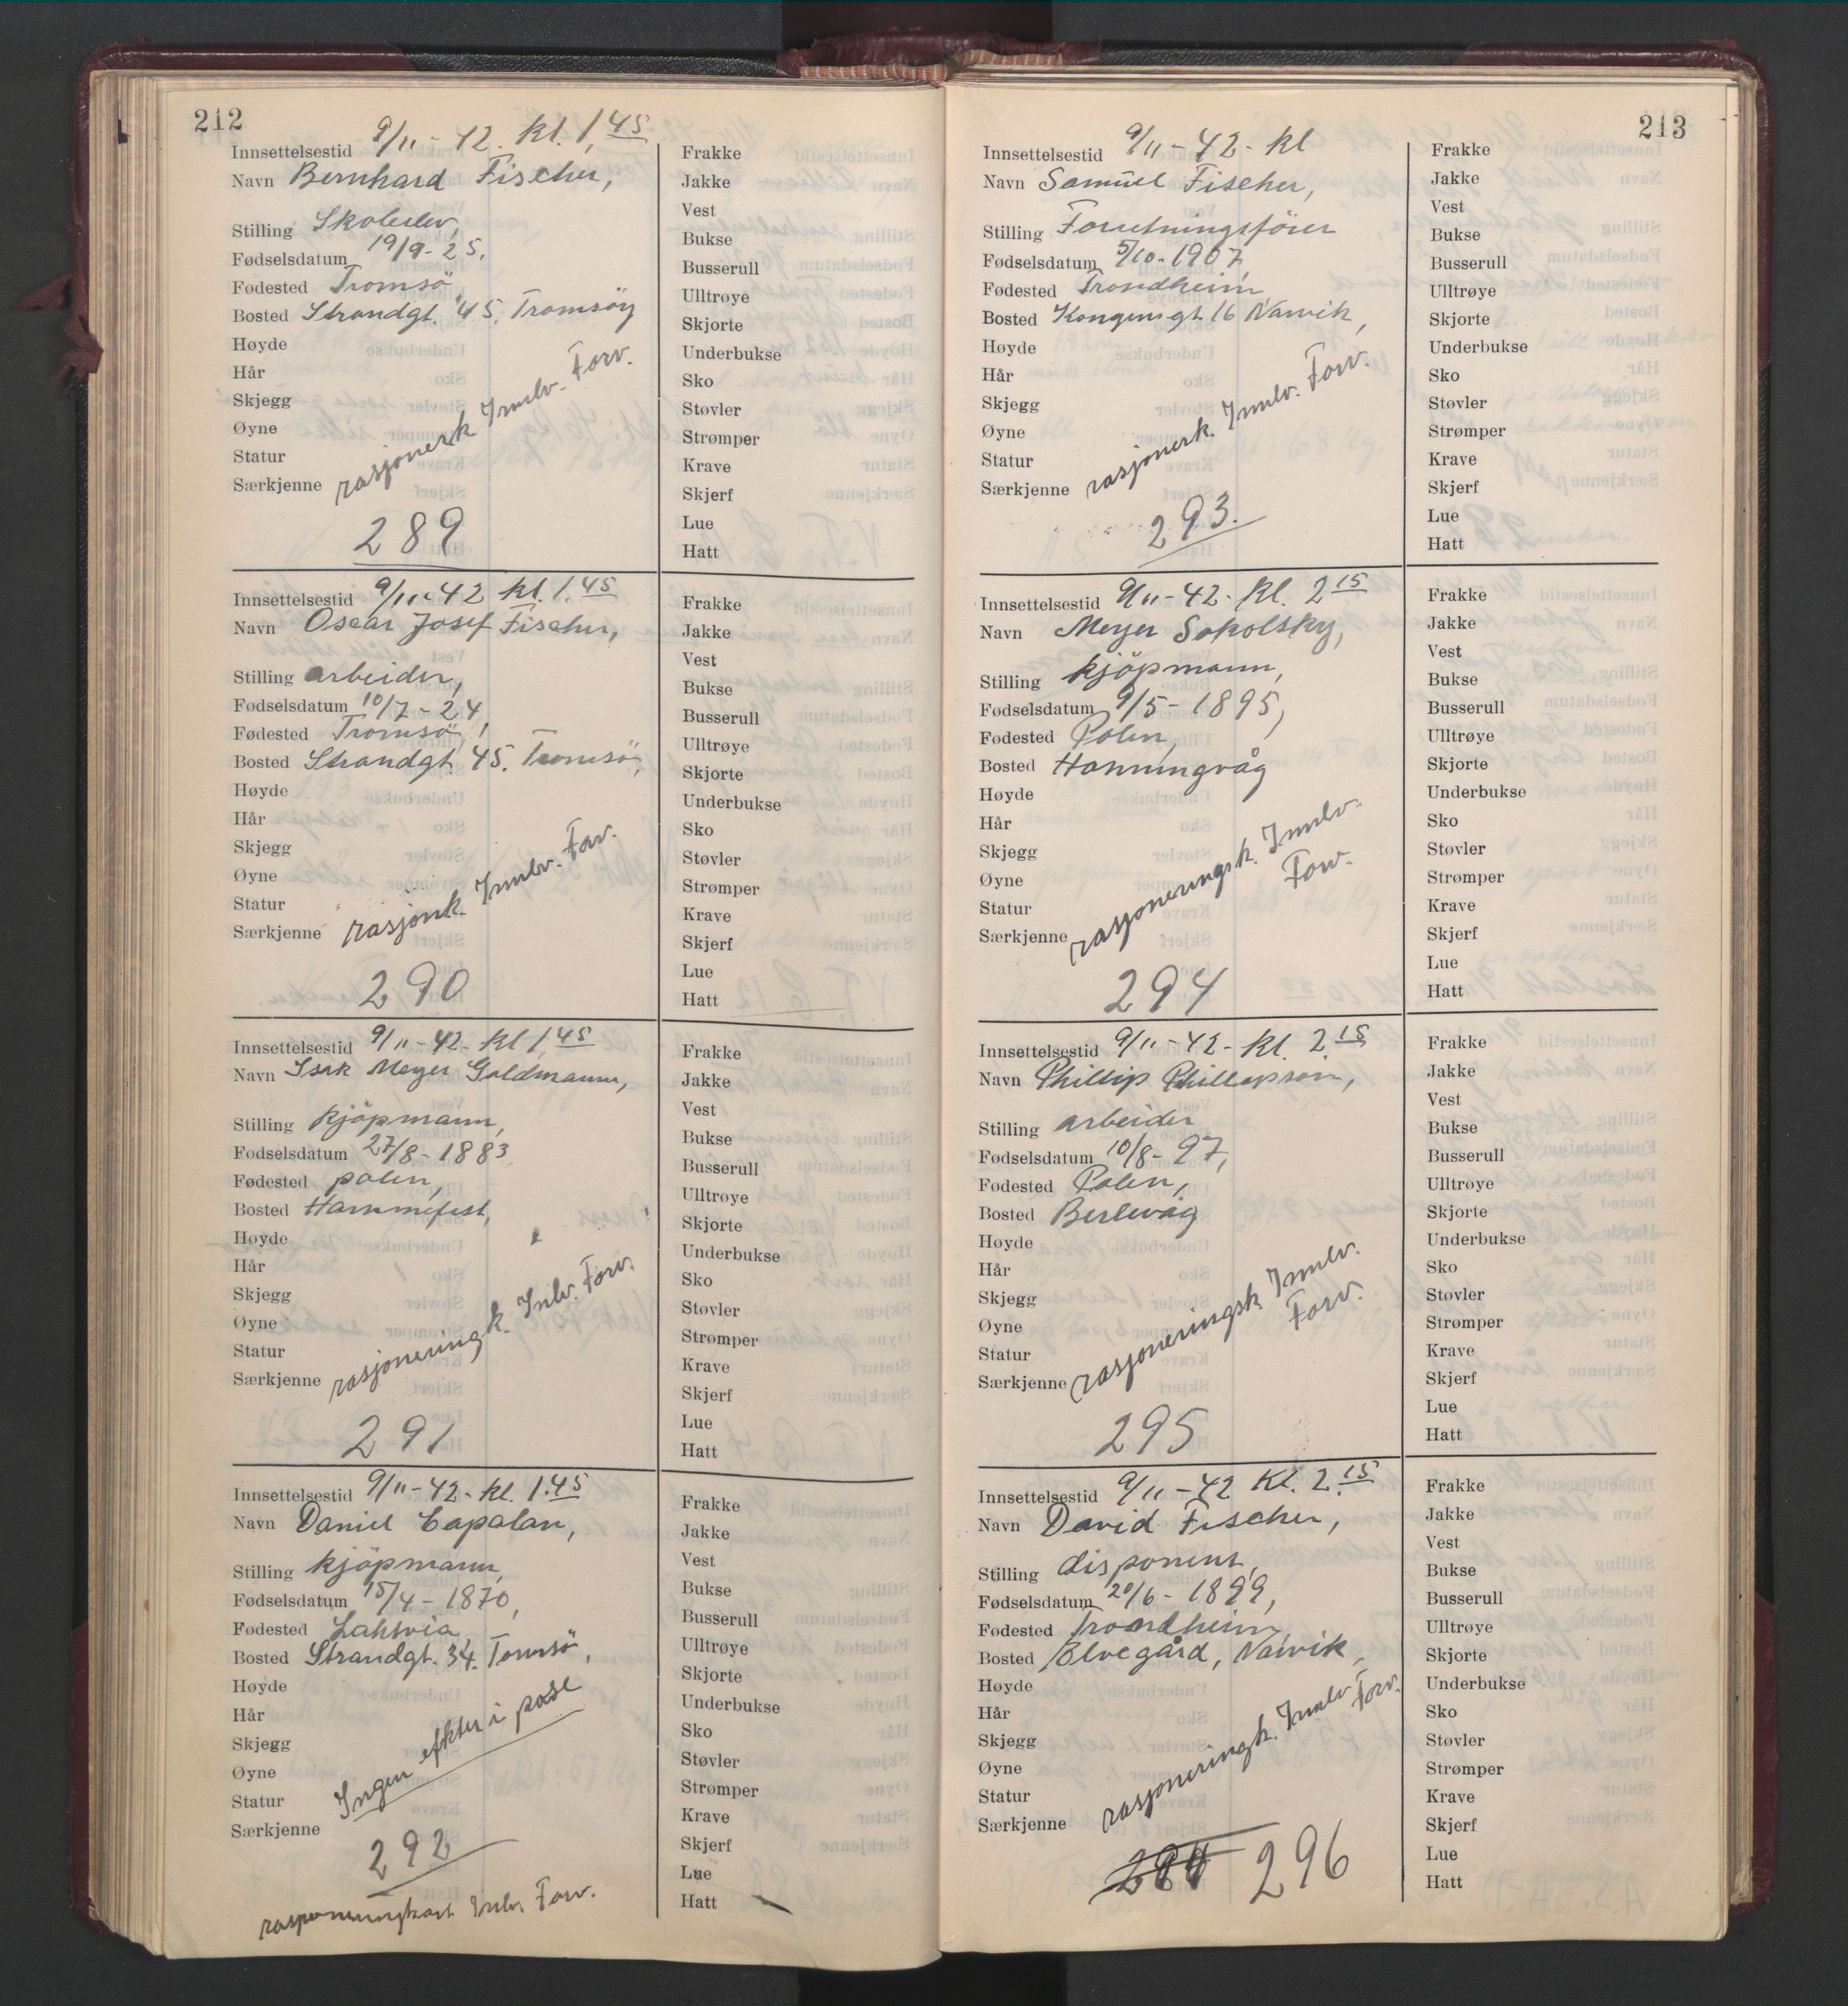 212
Innsettelsestid 9/11 - 42. kl. 1,45
Navn Bernhard Fischer,
Stilling Skoleelev,
Fødselsdatum 19/9 - 25,
Fødested Tromsö,
Bosted Strandgt. 45, Tromsöy
Høyde
Hår
Skjegg
Øyne
Statur
Særkjenne
rasjonerk Innlv. Forv.
289
Frakke
Jakke
Vest
Bukse
Busserull
Ulltrøye
Skjorte
Underbukse
Sko
Støvler
Strømper
Krave
Skjerf
Lue
Hatt
Innsettelsestid 9/11 - 42 kl. 1.45
Navn Oscar Josef Fischer,
Stilling arbeider,
Fødselsdatum 10/7 - 24,
Fødested Tromsö,
Bosted Strandgt. 45. Tromsö,
Høyde
Hår
Skjegg
Øyne
Statur
Særkjenne
rasjonk. Innlv. Forv.
290
Frakke
Jakke
Vest
Bukse
Busserull
Ulltrøye
Skjorte
Underbukse
Sko
Støvler
Strømper
Krave
Skjerf
Lue
Hatt
Innsettelsestid 9/11 - 42 - kl 1,45
Navn Isak Meyer Goldmann,
Stilling kjöpmann,
Fødselsdatum 27/8 - 1883
Fødested polen,
Bosted Hammefest,
Høyde
Hår
Skjegg
Øyne
Statur
Særkjenne
rasjonering k. Inlv. Forv.
291
Frakke
Jakke
Vest
Bukse
Busserull
Ulltrøye
Skjorte
Underbukse
Sko
Støvler
Strømper
Krave
Skjerf
Lue
Hatt
Innsettelsestid 9/11 - 42 - kl. 1.45
Navn Daniel Capalan,
Stilling kjöpmann,
Fødselsdatum 15/4 - 1870,
Fødested
Bosted Strandgt. 34. Tomsö,
Høyde
Hår
Skjegg
Øyne
Statur
Særkjenne
Ingen efkter i pose
292
rasponeringkort Inlv. Forv.
Frakke
Jakke
Vest
Bukse
Busserull
Ulltrøye
Skjorte
Underbukse
Sko
Støvler
Strømper
Krave
Skjerf
Lue
Hatt
213
Innsettelsestid 9/11 - 42 - kl
Navn Samuel Fischer,
Stilling Forretningsförer
Fødselsdatum 5/10 - 1907,
Fødested Trondheim
Bosted Kongensgt 16 Narvik,
Høyde
Hår
Skjegg
Øyne
Statur
Særkjenne
rasjonerk. Innlv. Forv.
293.
Frakke
Jakke
Vest
Bukse
Busserull
Ulltrøye
Skjorte
Underbukse
Sko
Støvler
Strømper
Krave
Skjerf
Lue
Hatt
Innsettelsestid 9/11 - 42 - kl. 2 15
Navn Meyer Sokolsky,
Stilling kjöpmann,
Fødselsdatum 9/5 - 1895,
Fødested Polen,
Bosted Honningvåg
Høyde
Hår
Skjegg
Øyne
Statur
Særkjenne
rasjoneringsk. Innlv.
Forv.
294
Frakke
Jakke
Vest
Bukse
Busserull
Ulltrøye
Skjorte
Underbukse
Sko
Støvler
Strømper
Krave
Skjerf
Lue
Hatt
Innsettelsestid 9/11 - 42 - kl. 2.15
Navn Phillip Phillipson,
Stilling arbeider
Fødselsdatum 10/8 - 97,
Fødested Polen,
Bosted Berlevåg
Høyde
Hår
Skjegg
Øyne
Statur
Særkjenne
rasjoneringsk Innlv.
Forv.
295
Frakke
Jakke
Vest
Bukse
Busserull
Ulltrøye
Skjorte
Underbukse
Sko
Støvler
Strømper
Krave
Skjerf
Lue
Hatt
Innsettelsestid 9/11 - 42 Kl. 2.15
Navn David Fischer,
Stilling disponent,
Fødselsdatum 20/6 - 1899,
Fødested Trondheim,
Bosted Elvegård, Narvik,
Høyde
Hår
Skjegg
Øyne
Statur
Særkjenne
rasjoneringk. Innlv
Forv.
296
Frakke
Jakke
Vest
Bukse
Busserull
Ulltrøye
Skjorte
Underbukse
Sko
Støvler
Strømper
Krave
Skjerf
Lue
Hatt